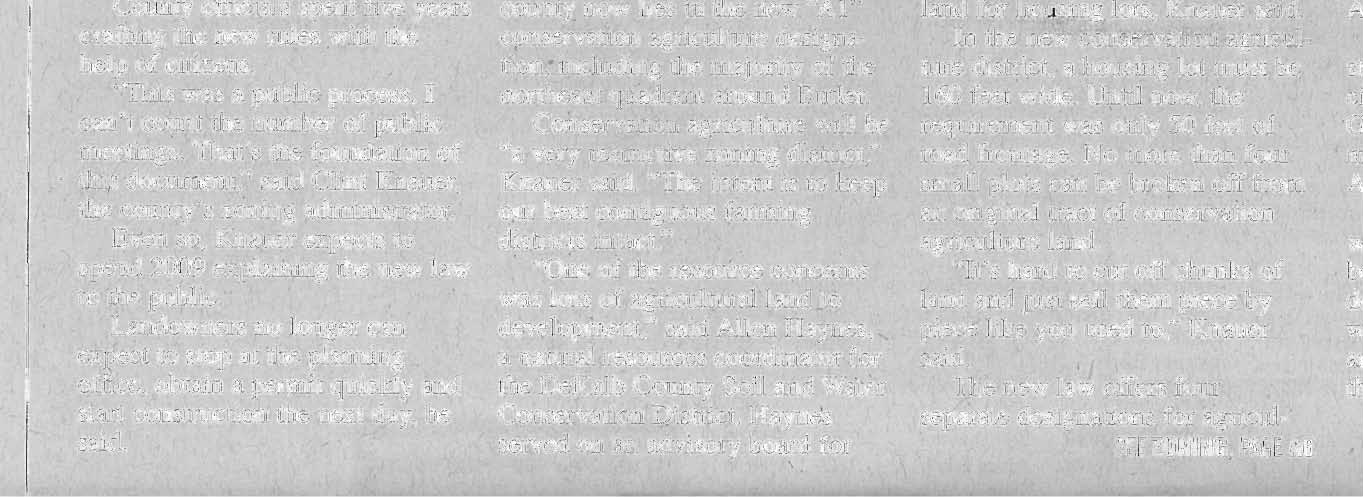 County officials spent five years
crafting the new rules with the
help of citizens.
"This was a public process. I
can't count the number of public
meetings. That's the foundation of
this document," said Clint Knauer,
the county's zoning administrator.
Even so, Knauer expects to
spend 2009 explaining the new law
to the public.
Landowners no longer can
expect to stop at the planning
office, obtain a permit quickly and
start construction the next day, he
said.
county now lies in the new "A1"
conservation agriculture designa-
tion, including the majority of the
northeast quadrant around Butler.
Conservation agriculture will be
"a very restrictive zoning district,"
Knauer said. "The intent is to keep
our best contiguous farming
districts intact."
"One of the resource concerns
was loss of agricultural land to
development," said Allen Haynes,
a natural resources coordinator for
the DeKalb County Soil and Water
Conservation District. Haynes
served on an advisory board for
land for housing lots, Knauer said.
In the new conservation agricul-
ture district, a housing lot must be
160 feet wide. Until now, the
requirement was only 50 feet of
road frontage. No more than four
small plots can be broken off from
an original tract of conservation
agriculture land.
"It's hard to cut off chunks of
land and just sell them piece by
piece like you used to," Knauer
said.
The new law offers four
separate designations for agricul-
SEE ZONING, PAGE